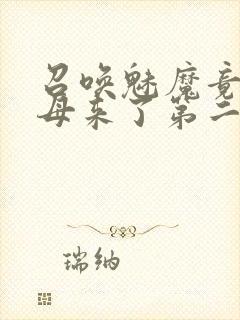 召唤魅魔竟
母来了第二
瑞纳